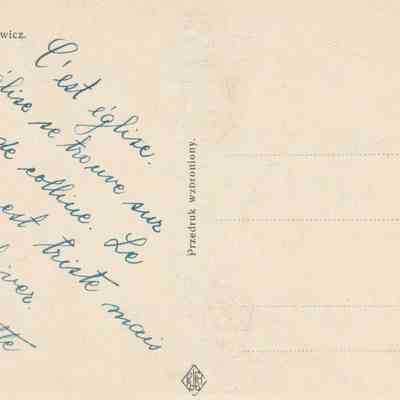 wicz.
C'est église.
église se trouve sur
de colline. Le
est triste mais
hiver.
Przedruk wzbroniony.